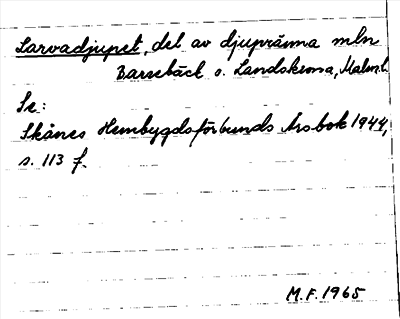 Larvadjupet, del av djupränna mln
Barsebäck o. Landskrona, Malmh.
Se:
Skånes Hembygdsförbunds Årsbok 1944,
s. 113 f.
M.F. 1965